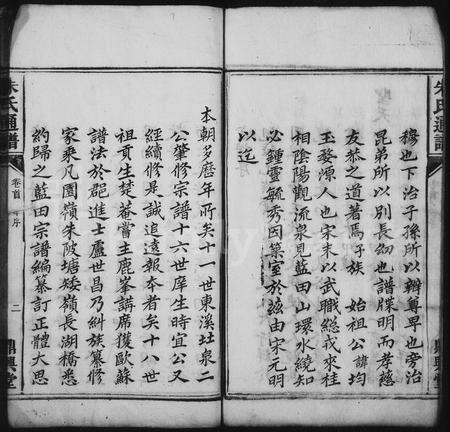 朱氏通譜
穆也下治子孫所以辨尊卑也旁治
昆弟所以別長幼也譜牒明而孝慈
友恭之道著焉子族 始祖公諱均
玉婺源人也宋末以武職總戎來桂
相陰陽觀流泉見藍田山環水繞知
必鍾靈毓秀因築室於茲由宋元明
以迄
鼎興堂
本朝多歷年所矣十一世東溪壯泉二
公肇修宗譜十六世庠生時宜公又
經續修是誠追遠報本者矣十八世
祖貢生楚菴嘗主鹿峯講席獲歐蘇
譜法於郡進士盧世昌乃糾族纂修
家乘凡園嶺朱陂塘矮嶺長湖橋悉
約歸之藍田宗譜編纂訂正體大思
朱氏通譜
卷首 序
二
鼎興堂